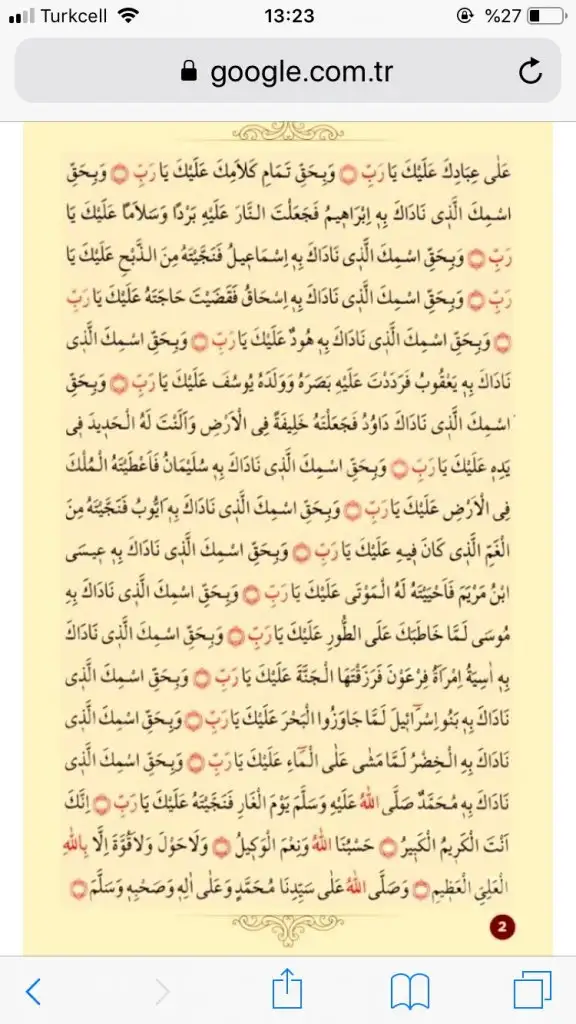 Turkcell 13:23 %27
google.com.tr
عَلٰى عِبَادِكَ عَلَيْكَ يَا رَبِّ ۝ وَبِحَقِّ تَمَامِ كَلَامِكَ عَلَيْكَ يَا رَبِّ ۝ وَبِحَقِّ
اسْمِكَ الَّذِى نَادَاكَ بِهِ اِبْرَاهِيمُ فَجَعَلْتَ النَّارَ عَلَيْهِ بَرْدًا وَسَلَامًا عَلَيْكَ يَا
رَبِّ ۝ وَبِحَقِّ اسْمِكَ الَّذِى نَادَاكَ بِهِ اِسْمَاعِيلُ فَنَجَّيْتَهُ مِنَ الذَّبْحِ عَلَيْكَ يَا
رَبِّ ۝ وَبِحَقِّ اسْمِكَ الَّذِى نَادَاكَ بِهِ اِسْحَاقُ فَقَضَيْتَ حَاجَتَهُ عَلَيْكَ يَا رَبِّ
۝ وَبِحَقِّ اسْمِكَ الَّذِى نَادَاكَ بِهِ هُودٌ عَلَيْكَ يَا رَبِّ ۝ وَبِحَقِّ اسْمِكَ الَّذِى
نَادَاكَ بِهِ يَعْقُوبُ فَرَدَدْتَ عَلَيْهِ بَصَرَهُ وَوَلَدَهُ يُوسُفَ عَلَيْكَ يَا رَبِّ ۝ وَبِحَقِّ
اسْمِكَ الَّذِى نَادَاكَ دَاوُدُ فَجَعَلْتَهُ خَلِيفَةً فِى الْاَرْضِ وَاَلَنْتَ لَهُ الْحَدِيدَ فِى
يَدِهِ عَلَيْكَ يَا رَبِّ ۝ وَبِحَقِّ اسْمِكَ الَّذِى نَادَاكَ بِهِ سُلَيْمَانُ فَاَعْطَيْتَهُ الْمُلْكَ
فِى الْاَرْضِ عَلَيْكَ يَا رَبِّ ۝ وَبِحَقِّ اسْمِكَ الَّذِى نَادَاكَ بِهِ اَيُّوبُ فَنَجَّيْتَهُ مِنَ
الْغَمِّ الَّذِى كَانَ فِيهِ عَلَيْكَ يَا رَبِّ ۝ وَبِحَقِّ اسْمِكَ الَّذِى نَادَاكَ بِهِ عِيسَى
ابْنُ مَرْيَمَ فَاَحْيَيْتَهُ لَهُ الْمَوْتَى عَلَيْكَ يَا رَبِّ ۝ وَبِحَقِّ اسْمِكَ الَّذِى نَادَاكَ بِهِ
مُوسَى لَمَّا خَاطَبَكَ عَلَى الطُّورِ عَلَيْكَ يَا رَبِّ ۝ وَبِحَقِّ اسْمِكَ الَّذِى نَادَاكَ
بِهِ اٰسِيَةُ اِمْرَاَةُ فِرْعَوْنَ فَرَزَقْتَهَا الْجَنَّةَ عَلَيْكَ يَا رَبِّ ۝ وَبِحَقِّ اسْمِكَ الَّذِى
نَادَاكَ بِهِ بَنُو اِسْرَٓائِيلَ لَمَّا جَاوَزُوا الْبَحْرَ عَلَيْكَ يَا رَبِّ ۝ وَبِحَقِّ اسْمِكَ الَّذِى
نَادَاكَ بِهِ الْخِضْرُ لَمَّا مَشٰى عَلَى الْمَٓاءِ عَلَيْكَ يَا رَبِّ ۝ وَبِحَقِّ اسْمِكَ الَّذِى
نَادَاكَ بِهِ مُحَمَّدٌ صَلَّى اللّٰهُ عَلَيْهِ وَسَلَّمَ يَوْمَ الْغَارِ فَنَجَّيْتَهُ عَلَيْكَ يَا رَبِّ ۝ اِنَّكَ
اَنْتَ الْكَرِيمُ الْكَبِيرُ ۝ حَسْبُنَا اللّٰهُ وَنِعْمَ الْوَكِيلُ ۝ وَلَا حَوْلَ وَلَا قُوَّةَ اِلَّا بِاللّٰهِ
الْعَلِىِّ الْعَظِيمِ ۝ وَصَلَّى اللّٰهُ عَلٰى سَيِّدِنَا مُحَمَّدٍ وَعَلٰى اٰلِهِ وَصَحْبِهِ وَسَلَّمَ ۝
2